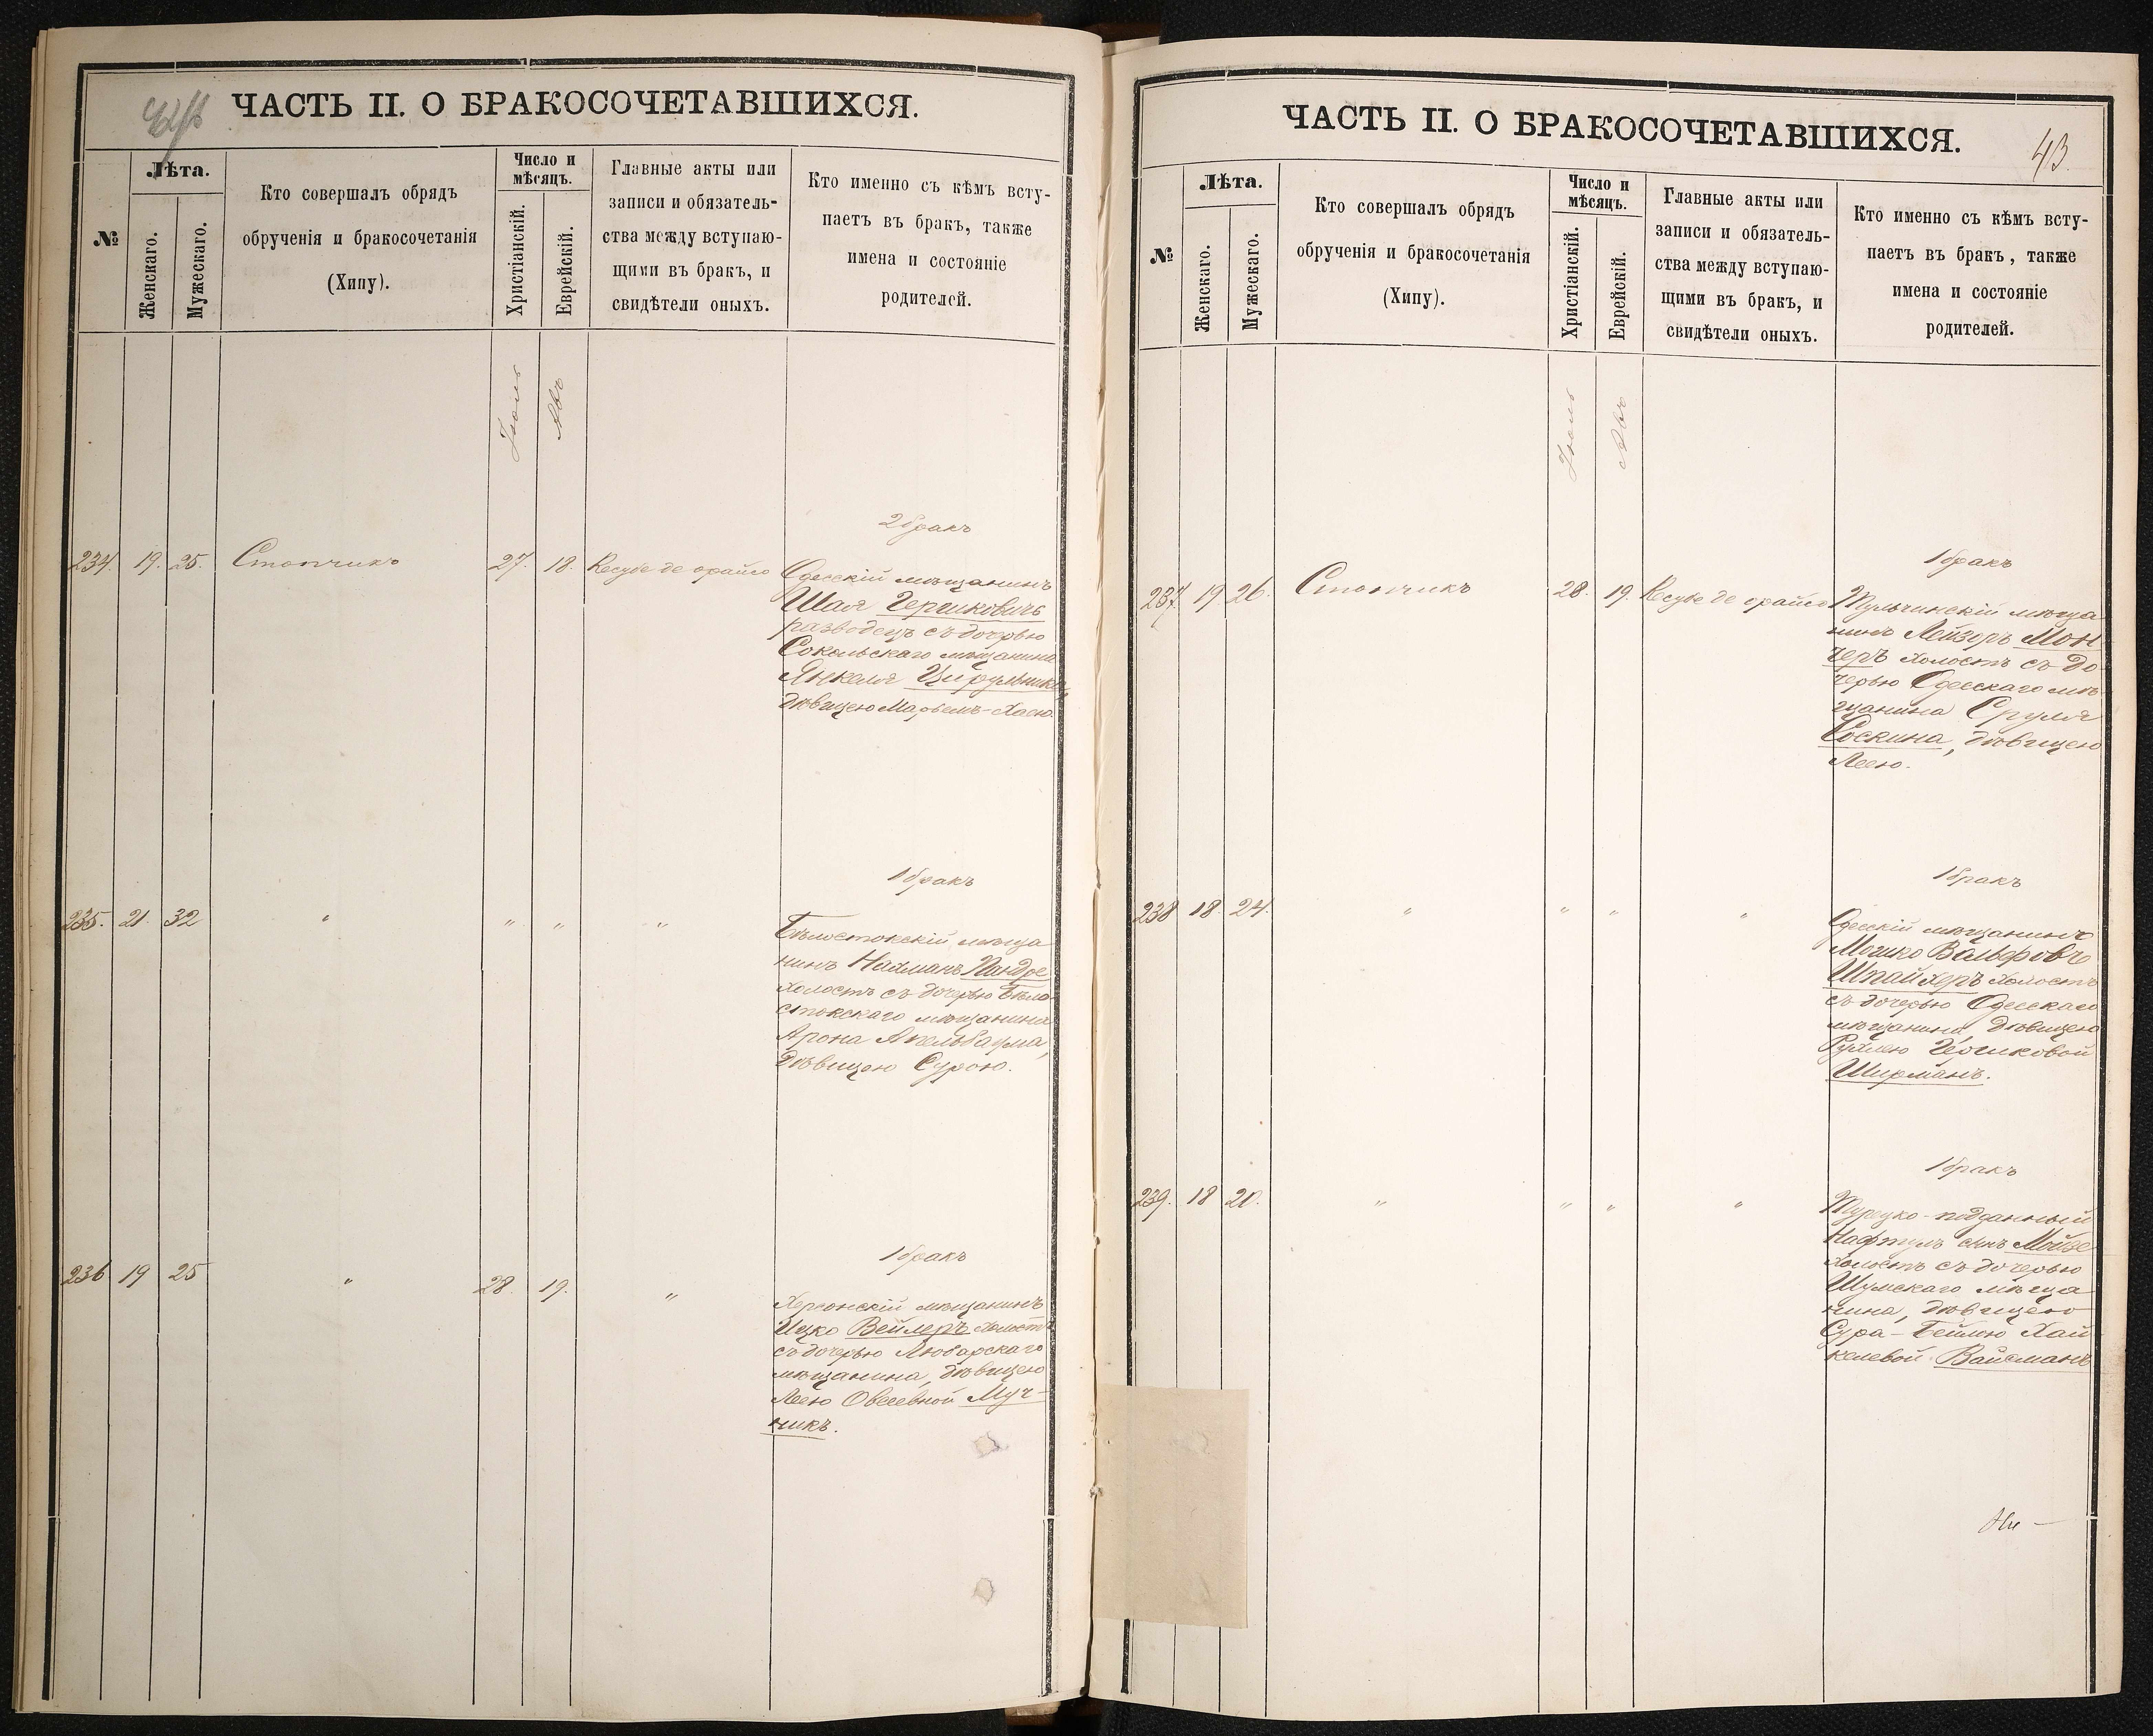 ЧАСТЬ II. О БРАКОСОЧЕТАВШИХСЯ.
№
Лѣта.
Женскаго.
Мужескаго.
Кто совершалъ обрядъ
обрученія и бракосочетанія
(Хипу).
Число и
мѣсяцъ.
Христіанскій.
Еврейскій.
Главные акты или
записи и обязатель-
ства между вступаю-
щими въ бракъ, и
свидѣтели оныхъ.
Кто именно съ кѣмъ всту-
паетъ въ бракъ, также
имена и состояніе
родителей.
Іюль
Авъ
2 бракъ
234. 19. 25. Стопчикъ 27. 18. Кесубе де орайсо
Одесскій мѣщанинъ
Шая Гершковичъ
разводецъ съ дочерью
Сокольскаго мѣщанина
Янкеля Цирульника,
дѣвицею Марьемъ-Хаею.
1 бракъ
235. 21. 32 " " " "
Бѣлостокскій мѣща
нинъ Нахманъ Пандре
холостъ съ дочерью Бѣло-
стокскаго мѣщанина
Арона Апельбаума,
дѣвицею Сурою.
1 бракъ
236 19 25 " 28. 19. "
Херсонскій мѣщанинъ
Ицко Вейлеръ холостъ
съ дочерью Любарскаго
мѣщанина, дѣвицею
Леею Овсеевной Муч-
никъ.
ЧАСТЬ II. О БРАКОСОЧЕТАВШИХСЯ.
43.
№
Лѣта.
Женскаго.
Мужескаго.
Кто совершалъ обрядъ
обрученія и бракосочетанія
(Хипу).
Число и
мѣсяцъ.
Христіанскій.
Еврейскій.
Главные акты или
записи и обязатель-
ства между вступаю-
щими въ бракъ, и
свидѣтели оныхъ.
Кто именно съ кѣмъ всту-
паетъ въ бракъ, также
имена и состояніе
родителей.
Іюль
Авъ
1 бракъ
237. 19 26. Стопчикъ 28. 19. Кесубе де орайсо
Тульчинскій мѣща
нинъ Лейзоръ Мон-
черъ холостъ съ до-
черью Одесскаго мѣ-
щанина Сруля
Соскина, дѣвицею
Леею.
1 бракъ
238 18. 24. " " " "
Одесскій мѣщанинъ
Мошко Вольфовъ
Шпайхеръ холостъ
съ дочерью Одесскаго
мѣщанина дѣвицею
Рухлею Иосиковой
Ширманъ.
1 бракъ
239. 18 20. " " " "
Турецко-подданный
Нафтулъ сынъ Мойзе
холостъ съ дочерью
Шумскаго мѣща
нина, дѣвицею
Сура-Бейлею Хай
келевой Вайсманъ